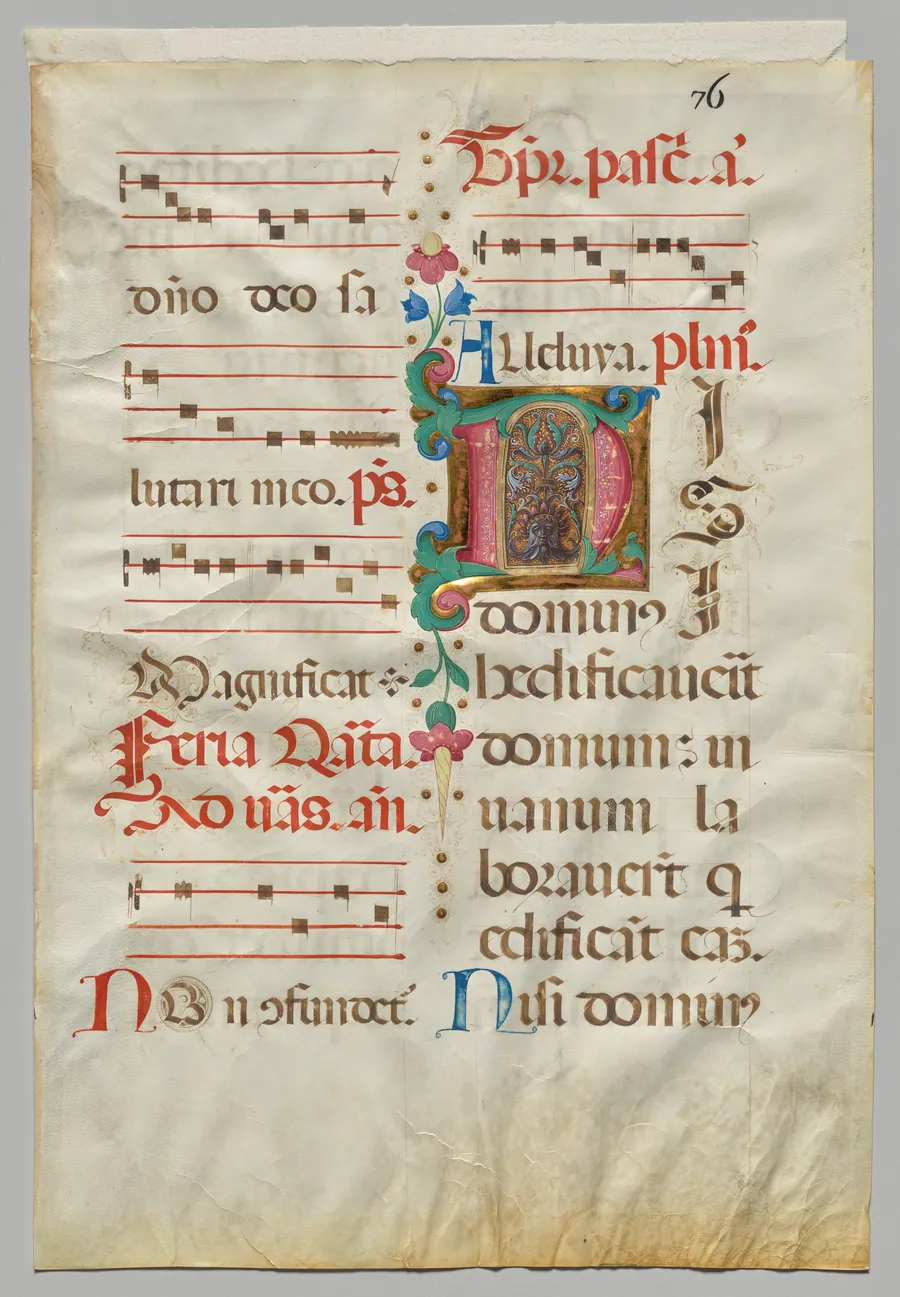 76
dño deo sa
lutari meo. p̃s.
Magnificat
Feria Qãta.
Ad uãs. añ.
NOn ↄfundet᷑.
Tp̃r. pasc̃. a᷑.
Alleluya. pſm̃.
NISI
dominꝰ
hedificauerit̃
domum: in
uanum la
borauer̃t q̃
edificãt eaꝫ.
Nisi dominꝰ